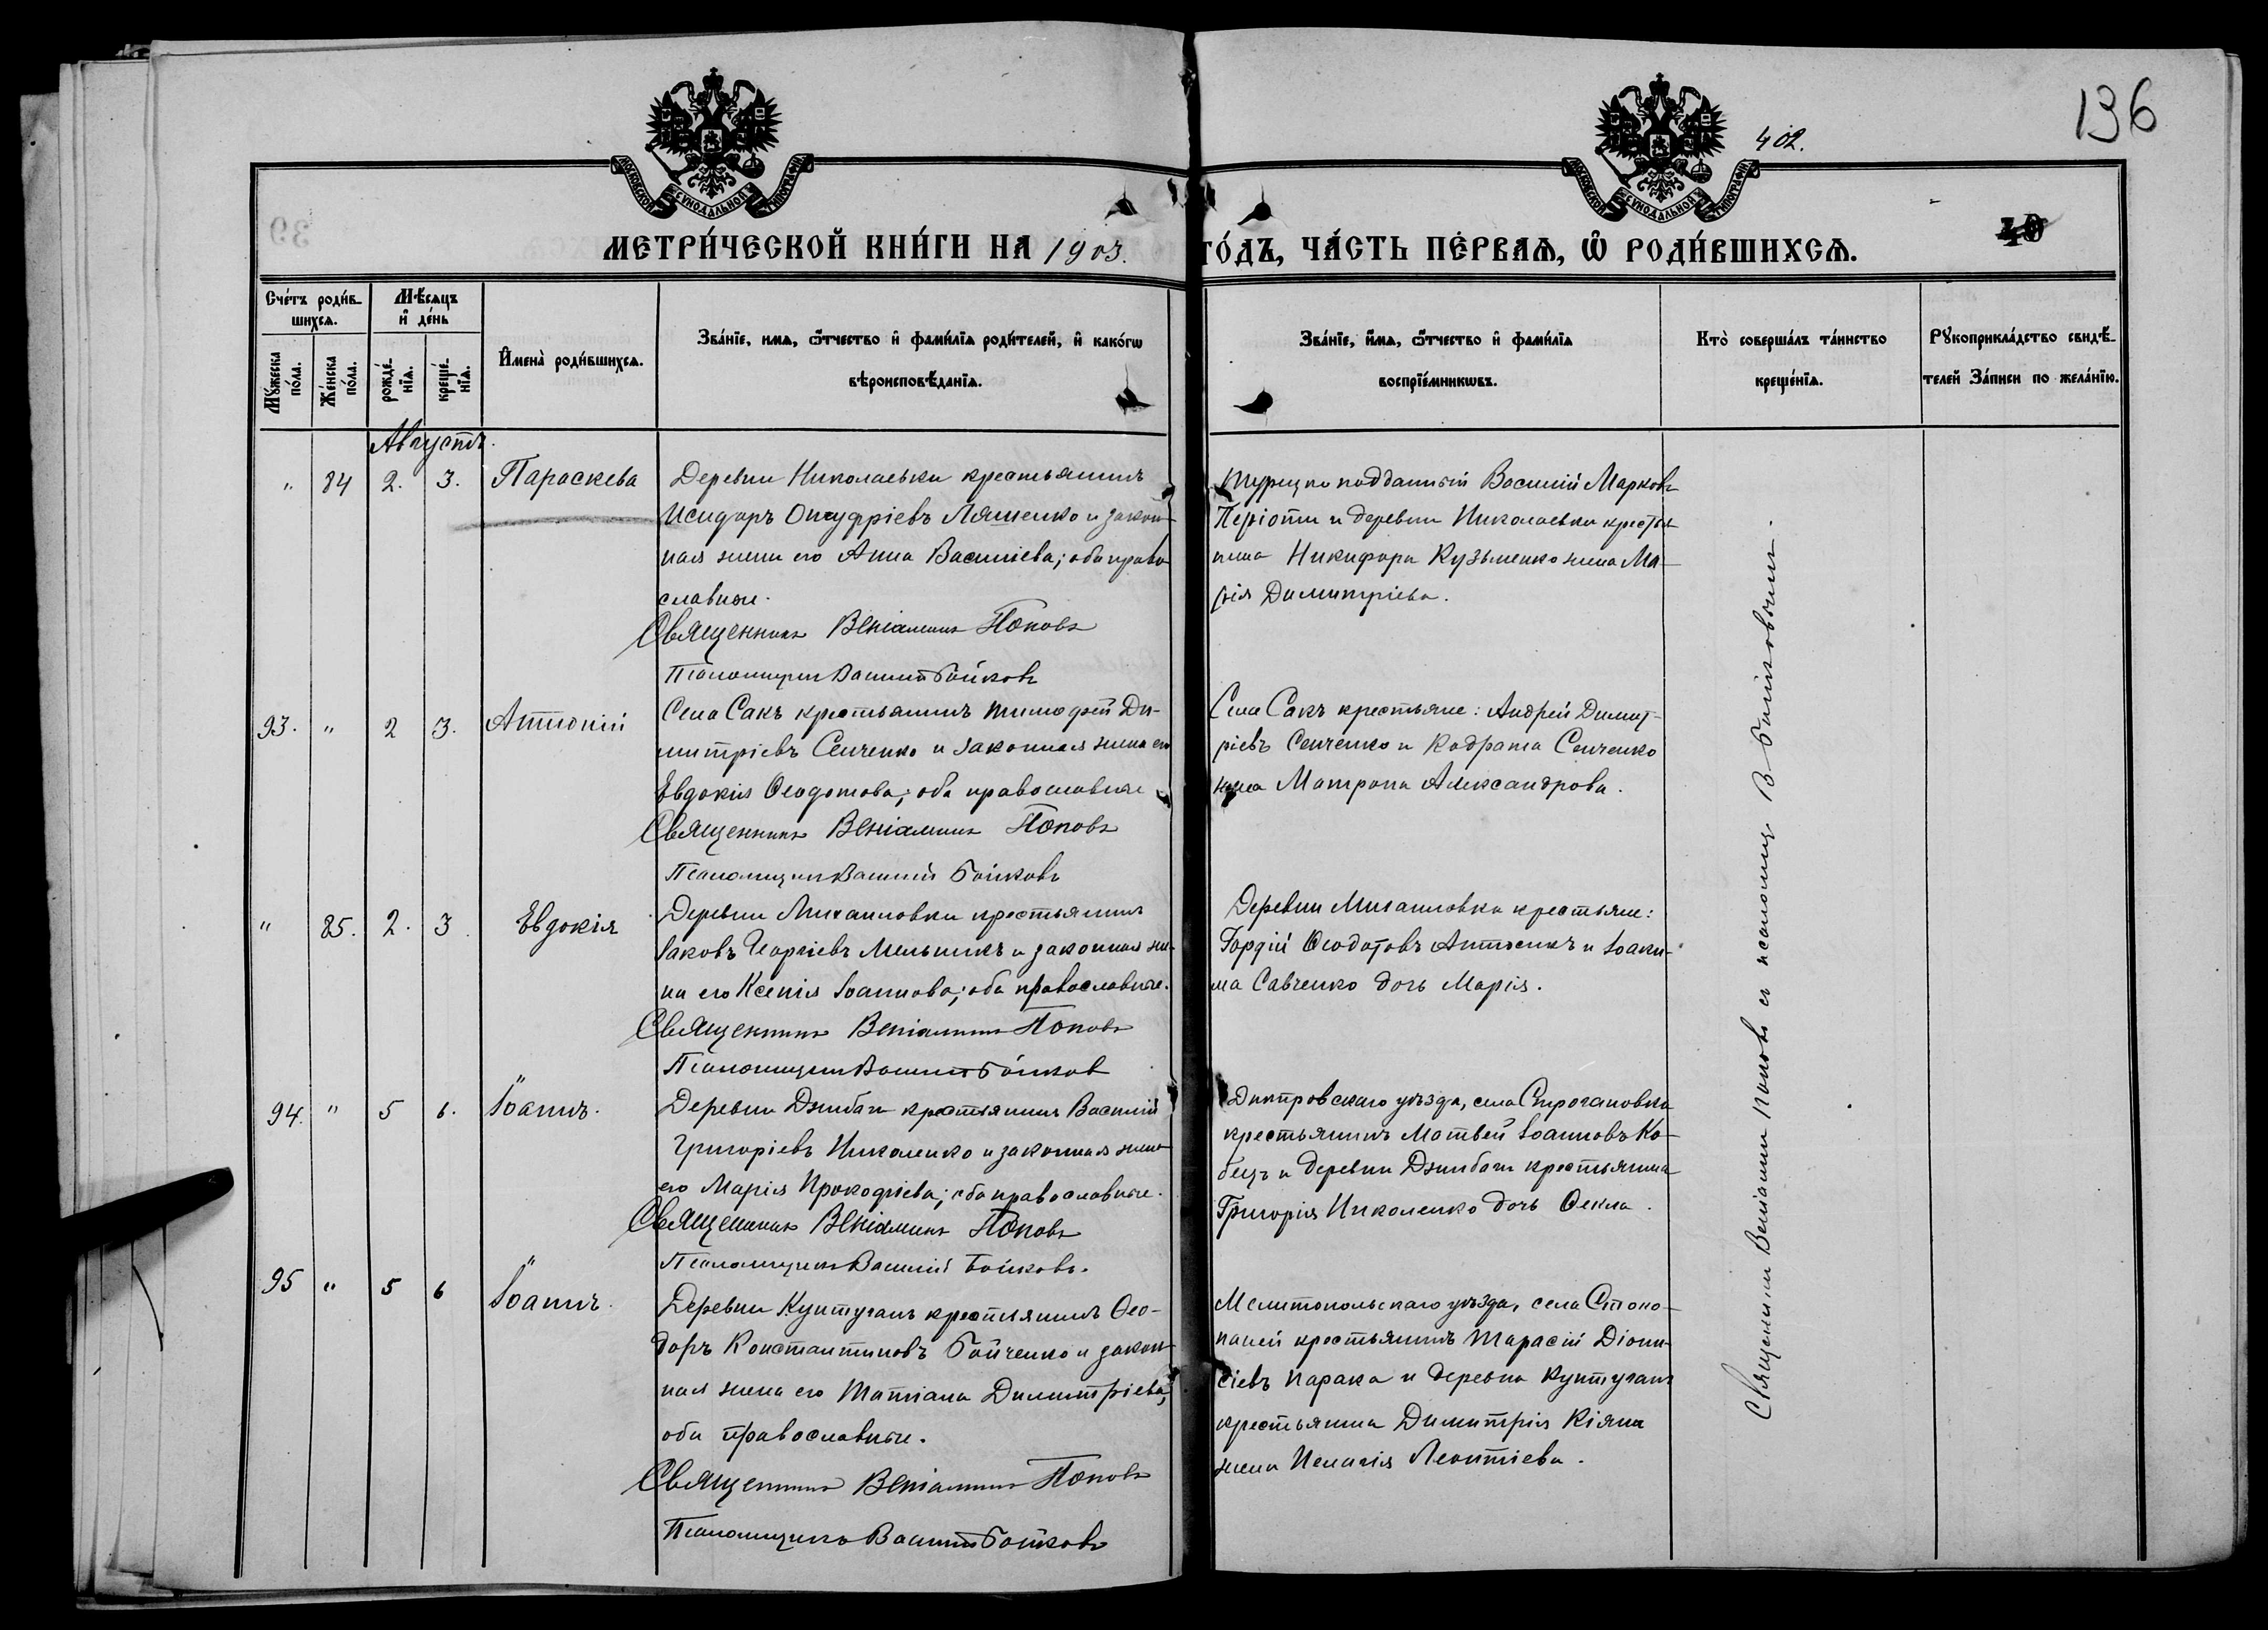 136
402.
МОСКОВСКОЙ СѴНОДАЛЬНОЙ ТИПОГРАФІИ
МОСКОВСКОЙ СѴНОДАЛЬНОЙ ТИПОГРАФІИ
39
40
МЕТРИ́ЧЕСКОЙ КНИ́ГИ НА 1903. ГО́ДЪ, ЧА́СТЬ ПЕ́РВАѦ, Ѽ РОДИ́ВШИХСѦ.
Сче́тъ роди́в-
шихсѧ.
Мꙋ́жеска по́ла.
Же́нска по́ла.
Мѣ́сѧцъ и҆ де́нь
рожде́-
нїѧ.
креще́-
нїѧ.
И҆мена̀ роди́вшихсѧ.
Зва́нїе, имѧ, ѻ҆́тчество и҆ фами́лїѧ роди́телей, и҆ како́гѡ
вѣроисповѣ́данїѧ.
Зва́нїе, и҆́мѧ, ѻ҆́тчество и҆ фами́лїѧ
воспрїе́мникѡвъ.
Кто̀ соверша́лъ та́инство
креще́нїѧ.
Рꙋкоприкла́дство свидѣ́-
телей За́писи по жела́нїю.
Августъ.
" 84 2. 3. Параскева
Деревни Николаевки крестьянинъ
Исидоръ Онуфріевъ Ляшенко и закон-
ная жена его Анна Васильева; оба право
славные.
Священникъ Веніаминъ Поповъ
Псаломщикъ Василій Бойковъ
Турецко подданный Василій Марковъ
Періоти и деревни Николаевки крестья
нина Никифора Кузьменко жена Ма-
рія Димитріева.
93. " 2 3. Антоній
Села Сакъ крестьянинъ Тимофей Ди-
митріевъ Сенченко и законная жена его
Евдокія Ѳеодотова; оба православные
Священникъ Веніаминъ Поповъ
Псаломщикъ Василій Бойковъ
Села Сакъ крестьяне: Андрей Димит-
ріевъ Сенченко и Кодрата Сенченко
жена Матрона Александрова.
" 85. 2. 3 Евдокія
Деревни Михаиловки крестьянинъ
Іаковъ Георгіевъ Мельникъ и законная же-
на его Ксенія Іоаннова; оба православные.
Священникъ Веніаминъ Поповъ
Псаломщикъ Василій Бойковъ
Деревни Михаиловки крестьяне:
Гордій Ѳеодотовъ Антосикъ и Іоаки-
ма Савченко дочь Марія.
94. " 5 6. Іоаннъ.
Деревни Джабачи крестьянинъ Василій
Григоріевъ Николенко и законная жена
его Марія Прокофіева; оба православные.
Священникъ Веніаминъ Поповъ
Псаломщикъ Василій Бойковъ.
Днѣпровскаго уѣзда, села Строгановки
крестьянинъ Матвей Іоанновъ Ко-
бецъ и деревни крестьянина
Григорія Николенко дочь Ѳекла.
95 " 5 6 Іоаннъ.
Деревни Кунтуганъ крестьянинъ Ѳео-
доръ Константиновъ Бойченко и закон
ная жена его Татіана Димитріева;
оба православные.
Священникъ Веніаминъ Поповъ
Псаломщикъ Василій Бойковъ
Мелитопольскаго уѣзда, села Стоко-
паней крестьянинъ Тарасій Діони-
сіевъ Парака и деревни Кунтуганъ
крестьянина Димитрія Кіяна
жена Пелагія Леонтіева.
Священникъ Веніаминъ Поповъ съ псаломщ. В. Бойковымъ.